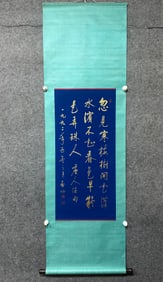 忽見寒梅樹開花漢
水濱不知春色早疑
是弄珠人 唐人詩句
一九九二年